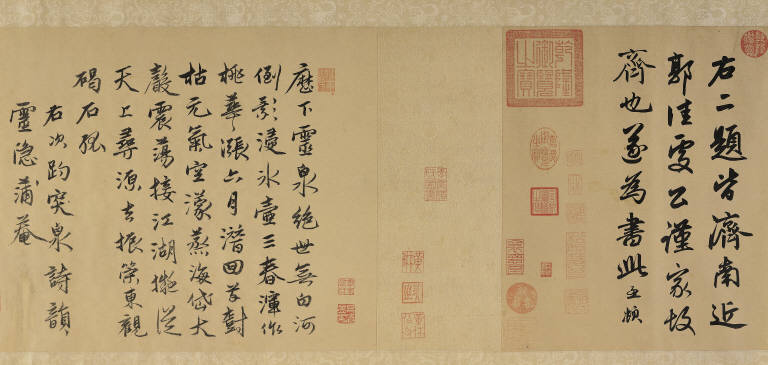 乾隆御覽之寶
右二題皆濟南近
郭佳處公謹家故
齊也遂為書此孟頫
歷下靈泉絕世無白河
倒影浸冰壺三春渾作
桃華漲六月潛回草樹
枯元氣空濛蒸海岱大
聲震蕩接江湖擬從
天上尋源去振策東觀
碣石孤
右次趵突泉詩韻
靈隱蒲菴